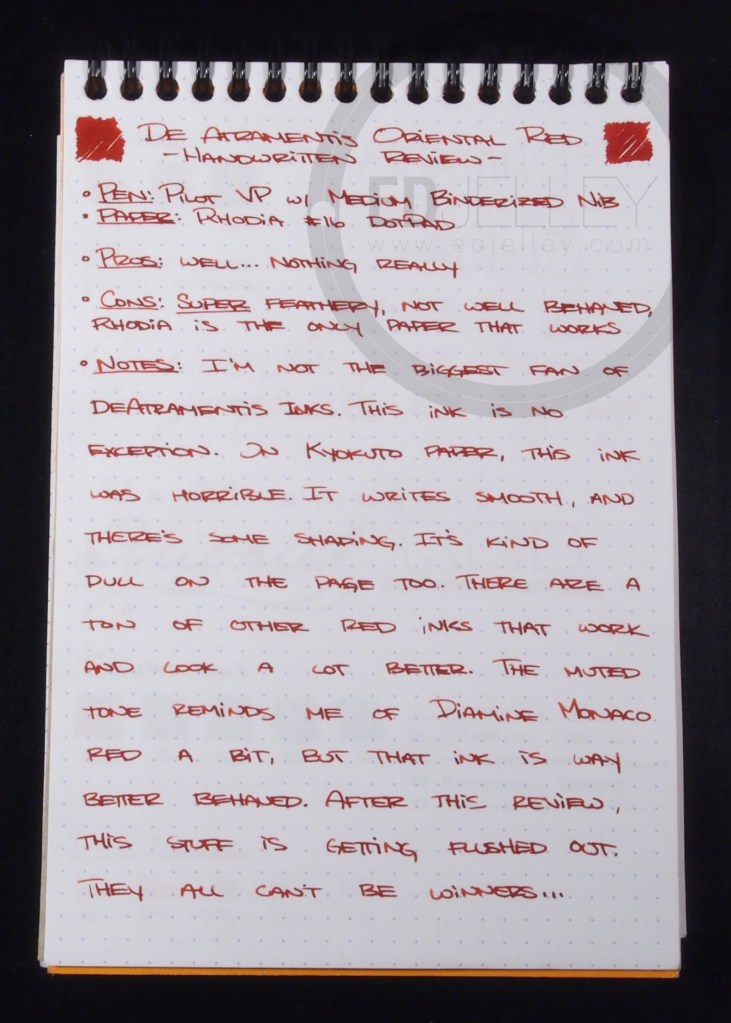 De Atramentis Oriental Red
- Handwritten Review -
• Pen: Pilot VP w/ Medium Binderized Nib
• Paper: Rhodia #16 DotPad
• Pros: Well... nothing really
• Cons: Super feathery, not well behaved,
Rhodia is the only paper that works
• Notes: I'm not the biggest fan of
DeAtramentis Inks. This ink is no
exception. On Kyokuto paper, this ink
was horrible. It writes smooth, and
there's some shading. It's kind of
dull on the page too. There are a
ton of other red inks that work
and look a lot better. The muted
tone reminds me of Diamine Monaco
Red a bit, but that ink is way
better behaved. After this review,
this stuff is getting flushed out.
They all can't be winners...
EDJELLEY
www.edjelley.com